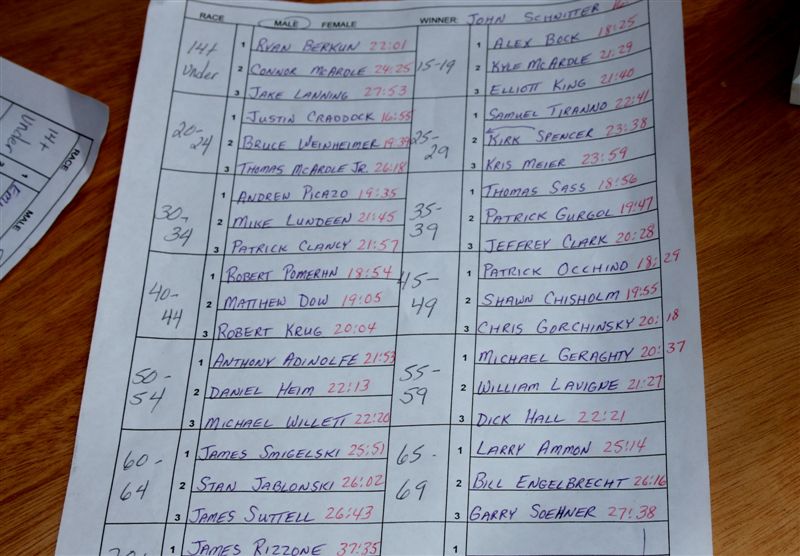 RACE MALE FEMALE WINNER: JOHN SCHNITTER 16:
14+ Under
1 RYAN BERKUN 22:01
2 CONNOR MCARDLE 24:25
3 JAKE LANNING 27:53
15-19
1 ALEX BOCK 18:25
2 KYLE MCARDLE 21:29
3 ELLIOTT KING 21:40
20-24
1 JUSTIN CRADDOCK 16:55
2 BRUCE WEINHEIMER 19:39
3 THOMAS MCARDLE JR. 26:18
25-29
1 SAMUEL TIRANNO 22:41
2 KIRK SPENCER 23:38
3 KRIS MEIER 23:59
30-34
1 ANDREW PICAZO 19:35
2 MIKE LUNDEEN 21:45
3 PATRICK CLANCY 21:57
35-39
1 THOMAS SASS 18:56
2 PATRICK GURGOL 19:47
3 JEFFREY CLARK 20:28
40-44
1 ROBERT POMERHN 18:54
2 MATTHEW DOW 19:05
3 ROBERT KRUG 20:04
45-49
1 PATRICK OCCHINO 18:29
2 SHAWN CHISHOLM 19:55
3 CHRIS GORCHINSKY 20:18
50-54
1 ANTHONY ADINOLFE 21:53
2 DANIEL HEIM 22:13
3 MICHAEL WILLETT 22:20
55-59
1 MICHAEL GERAGHTY 20:37
2 WILLIAM LAVIGNE 21:27
3 DICK HALL 22:21
60-64
1 JAMES SMIGELSKI 25:51
2 STAN JABLONSKI 26:02
3 JAMES SUTTELL 26:43
65-69
1 LARRY AMMON 25:14
2 BILL ENGELBRECHT 26:16
3 GARRY SOEHNER 27:38
1 JAMES RIZZONE 37:35
1
RACE MALE
14+ Under
1